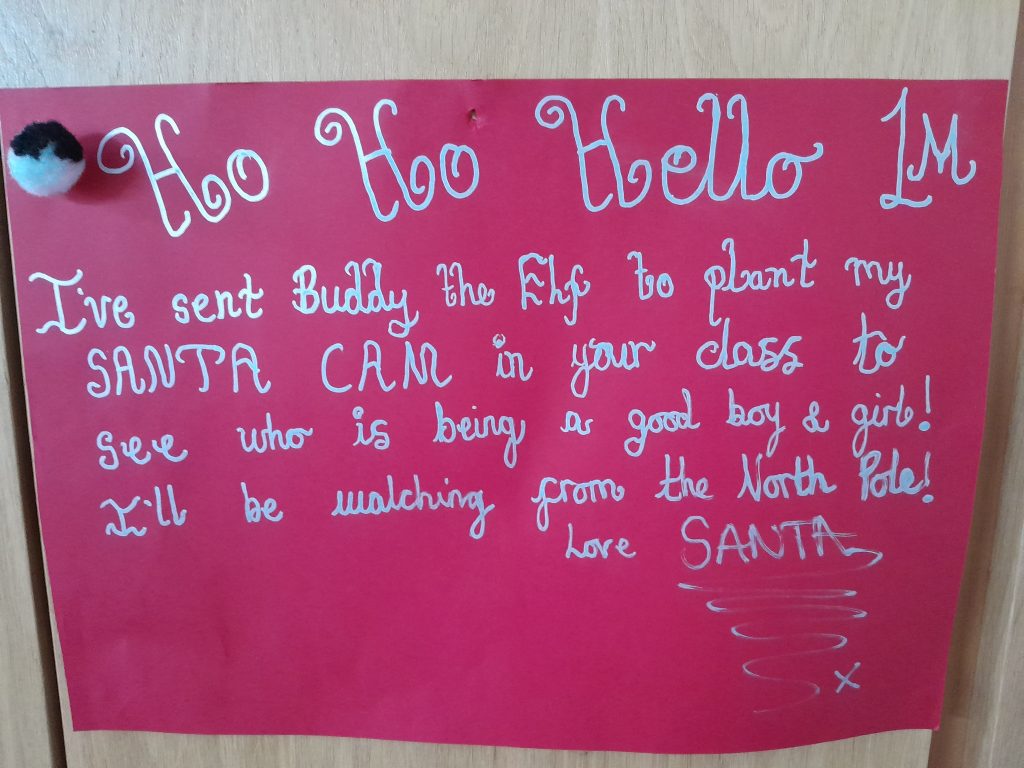 Ho Ho Hello 1M
I've sent Buddy the Elf to plant my
SANTA CAM in your class to
see who is being a good boy & girl!
I'll be watching from the North Pole!
Love SANTA
x